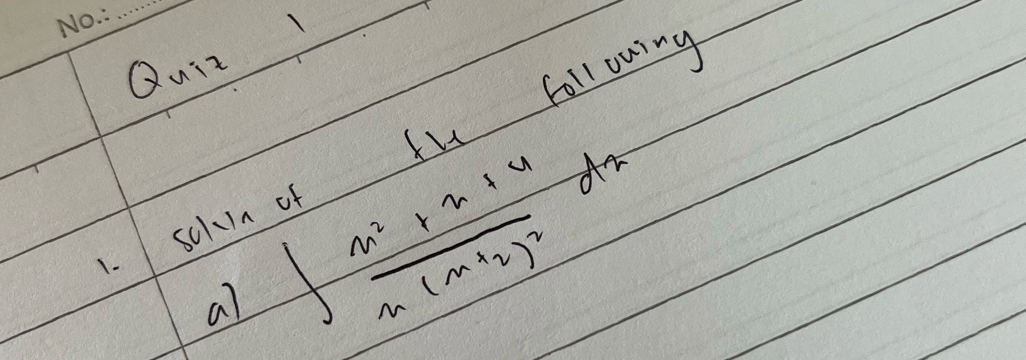 No.:
Quiz 1
1. solvin of the following
a) ∫ x² + x + 4 / x (x+2)² dx